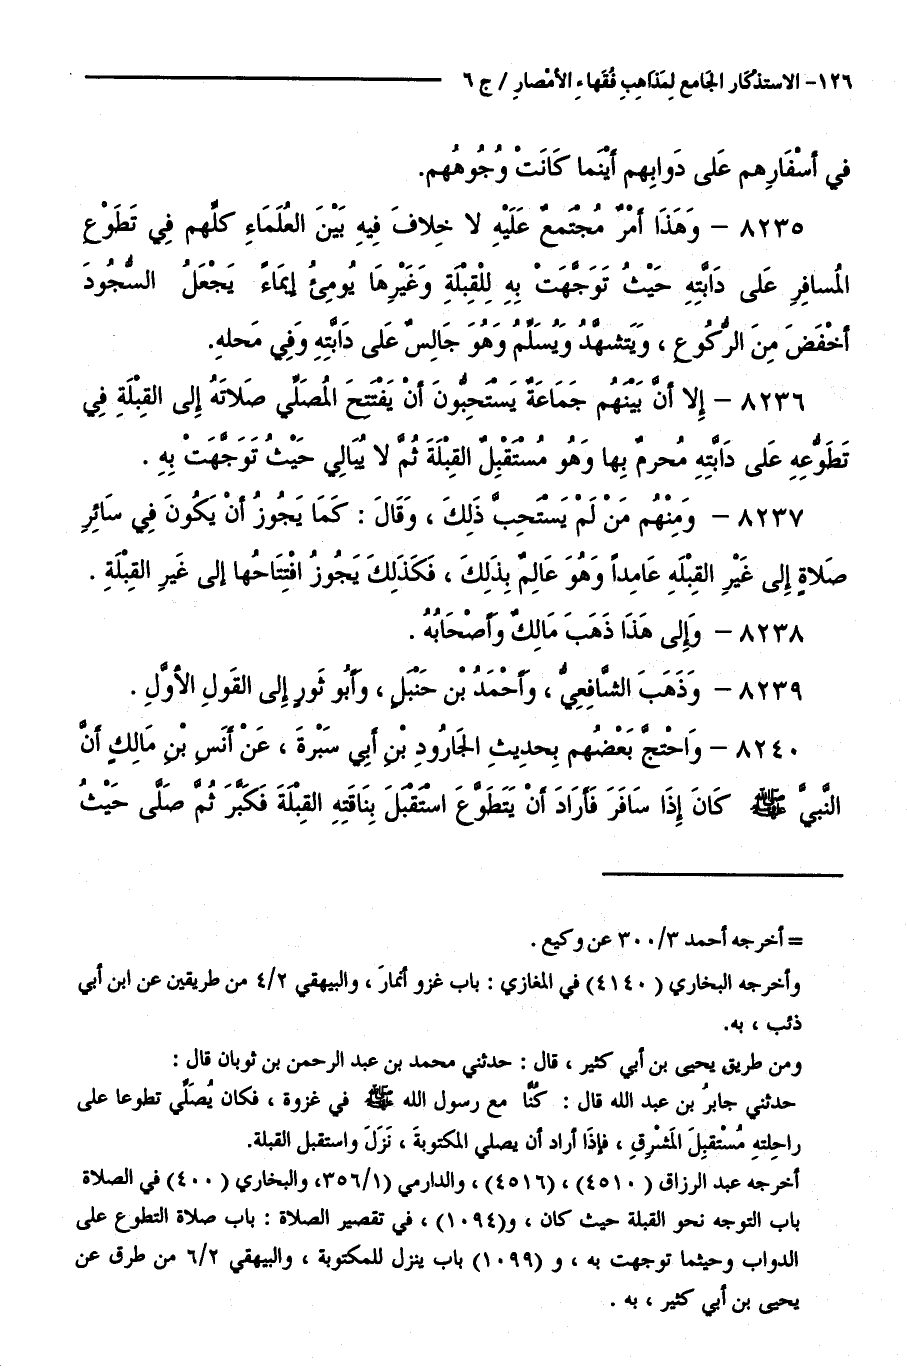 ١٢٦- الاستذكار الجامع لِمَذاهِبِ فُقَهاءِ الأَمْصارِ / ج ٦
في أسْفَارِهم عَلى دَوابِهم أيْنَما كَانَتْ وُجُوهُهم.
٨٢٣٥ – وَهَذَا أمْرٌ مُجْتَمعٌ عَلَيْهِ لا خِلافَ فِيهِ بَيْنَ العُلَمَاءِ كلِّهم فِي تَطَوْعِ
المُسافِرِ عَلى دَابَّتِهِ حَيْثُ تَوَجَّهَتْ بِهِ لِلْقِبْلَةِ وَغَيْرِهَا يُومِئُ إيمَاءً يَجْعَلُ السُّجُودَ
أخْفَضَ مِنَ الرُّكُوعِ ، وَيَتَشهَّدُ وَيُسَلِّمُ وَهُوَ جَالِسٌ عَلى دَابَّتِهِ وَفِي مَحلهِ.
٨٢٣٦ – إِلا أنَّ بَيْنَهُم جَمَاعَةٌ يَسْتَحِبُّونَ أنْ يَفْتَتِحَ المُصَلِّي صَلاتَهُ إِلى القِبْلَةِ فِي
تَطَوُّعِهِ عَلى دَابَّتِهِ مُحرمٌ بِها وَهُو مُسْتَقْبِلٌ القِبْلَةَ ثُمَّ لا يُبَالِي حَيْثُ تَوَجَّهَتْ بِهِ .
٨٢٣٧ – وَمِنْهُم مَنْ لَمْ يَسْتَحِبَّ ذَلِكَ ، وَقَالَ : كَمَا يَجُوزُ أنْ يَكُونَ فِي سَائِرِ
صَلاةٍ إِلى غَيْرِ القِبْلَهِ عَامِداً وَهُوَ عَالِمٌ بِذَلِكَ ، فَكَذَلِكَ يَجُوزُ افْتِتَاحُها إلى غَيرِ القِبْلَةِ .
٨٢٣٨ – وَإِلى هَذَا ذَهَبَ مَالِكٌ وَأصْحَابُهُ .
٨٢٣٩ – وَذَهَبَ الشَّافعِيُّ ، وَأَحْمَدُ بْن حَنْبَلٍ ، وَأَبُو ثَورٍ إِلى القَولِ الأوَّلِ .
٨٢٤٠ – وَاحْتجَّ بَعْضُهُم بِحديثِ الجَارُودِ بْنِ أبِي سَبْرةَ ، عَنْ أنَسِ بْنِ مَالِكٍ أنَّ
النَّبيَّ ﷺ كَانَ إِذَا سَافَرَ فَأرَادَ أنْ يَتَطَوَّعَ اسْتَقْبَلَ بِنَاقَتِهِ القِبْلَةَ فَكَبَّرَ ثُمَّ صَلَّى حَيْثُ
= أخرجه أحمد ٣٠٠/٣ عن وكيع .
وأخرجه البخاري ( ٤١٤٠) في المغازي : باب غزو أنمارَ ، والبيهقي ٤/٢ من طريقين عن ابن أبي
ذئب ، به.
ومن طريق يحيى بن أبي كثير ، قال : حدثني محمد بن عبد الرحمن بن ثوبان قال :
حدثني جابرُ بن عبد الله قال : كنَّا مع رسول الله ﷺ في غزوة ، فكان يُصَلِّي تطوعا على
راحِلتهِ مُسْتقبِلَ المَشْرِقِ ، فإذَا أراد أن يصلي المكتوبةَ ، نَزَلَ واستقبل القبلة.
أخرجه عبد الرزاق ( ٤٥١٠) ، (٤٥١٦) ، والدارمي (٣٥٦/١، والبخاري ( ٤٠٠) في الصلاة
باب التوجه نحو القبلة حيث كان ، و(١٠٩٤) ، في تقصير الصلاة : باب صلاة التطوع على
الدواب وحيثما توجهت به ، و (١٠٩٩) باب ينزل للمكتوبة ، والبيهقي ٦/٢ من طرق عن
يحيى بن أبي كثير ، به .